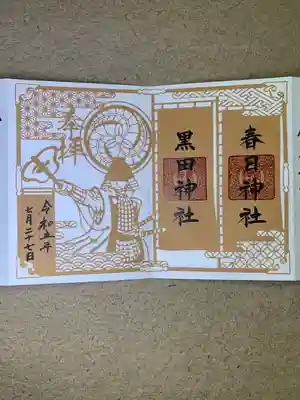 春日神社
黒田神社
奉拝
令和五年
七月二十七日